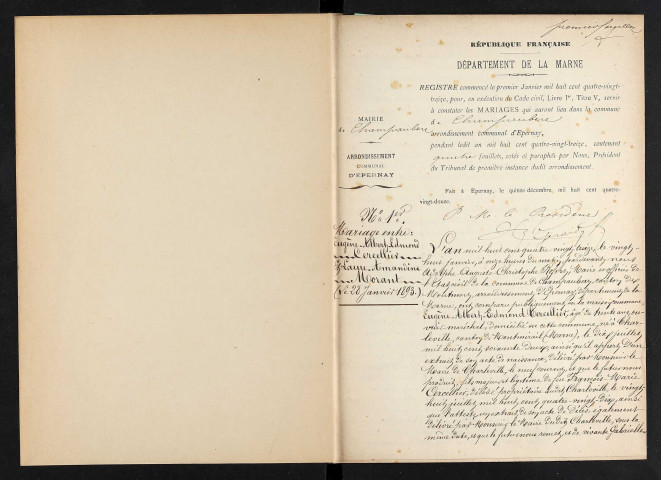 premier feuillet
RÉPUBLIQUE FRANÇAISE
DÉPARTEMENT DE LA MARNE
REGISTRE commencé le premier Janvier mil huit cent quatre-vingt-
treize, pour, en exécution du Code civil, Livre Ier, Titre V, servir
à constater les MARIAGES qui auront lieu dans la commune
de Champaubert
arrondissement communal d'Epernay,
pendant ledit an mil huit cent quatre-vingt-treize, contenant
quatre feuillets, cotés et paraphés par Nous, Président
du Tribunal de première instance dudit arrondissement.
Fait à Epernay, le quinze décembre, mil huit cent quatre-
vingt-douze.
P. Mr le Président
MAIRIE
de Champaubert
ARRONDISSEMENT
COMMUNAL
D'EPERNAY
No 1er
Mariage entre:
Eugène Albert Edmond
Cercellier
& Laure Amandine
Morant
(le 28 Janvier 1893.)
L'an mil huit cent quatre vingt treize, le vingt-
huit janvier, à onze heures du matin, pardevant nous
Adolphe Auguste Christophe, Maire officier de
l'Etat civil de la commune de Champaubert, canton de
Montmort, arrondissement d'Epernay, département de la
Marne, ont comparu publiquement en la maison commune
Eugène Albert Edmond Cercellier, âgé de trente ans, ou-
vrier maréchal, domicilié en cette commune, né à Char-
leville, canton de Montmirail (Marne), le dix juillet
mil huit cent soixante deux, ainsi qu'il appert d'un
extrait de son acte de naissance, délivré par Monsieur le
Maire de Charleville, le neuf courant, et que le futur nous
produit, fils majeur et légitime de feu François Marie
Cercellier, décédé propriétaire audit Charleville, le vingt-
huit juillet mil huit cent quatre-vingt-dix, ainsi
que l'atteste un extrait de son acte de décès, également
délivré par Monsieur le Maire dudit Charleville, sous la
même date, et que le futur nous remet, et de vivante Gabrielle